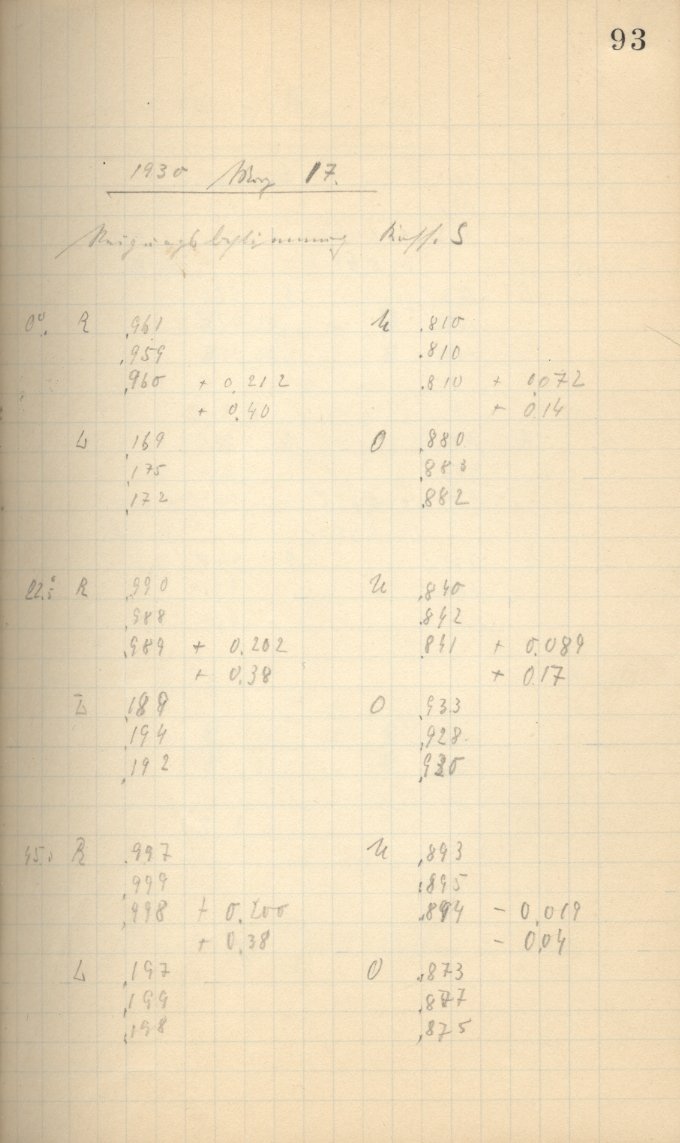 93
1930 May 17.
Neigungsbestimmung S
0°. R .961 U .810
.959 .810
.960 + 0.212 .810 + 0.072
+ 0.40 + 0.14
L .169 O .880
.175 .883
.172 .882
22.°5 R .990 U .840
.988 .842
.989 + 0.202 .841 + 0.089
+ 0.38 + 0.17
L .189 O .933
.194 .928
.192 .930
45.0 R .997 U .893
.999 .895
.998 + 0.200 .894 - 0.019
+ 0.38 - 0.04
L .197 O .873
.199 .877
.198 .875